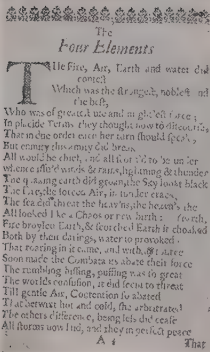 The
Four Elements
THe Fire, Air, Earth and water did
contest
Which was the strongest, noblest and
the best,
Who was of greatest use and
In placide Terms they thought now to discourse,
That in due order each her turn should speak;
But enmity this amity did break
All would be chief, and all scorn'd to be under
whence issu'd winds & rains, lightning & thunder
The quaking earth did groan, the Sky lookt black
The Fire, the forced Air, in sunder crack;
The sea did threat the heav'ns, the heavn's the earth,
All looked like a Chaos or new birth:
Fire broyled Earth, & scorched Earth it choaked
Both by their darings, water so provoked
That roaring in it came, and with its source
Soon made the Combatants abate their force
The rumbling hissing, puffing was so great
The worlds confusion, it did seem to threat
Till gentle Air, Contention so abated
That betwixt hot and cold, she arbitrated
The others difference, being less did cease
All storms now laid, and they in perfect peace
A
That